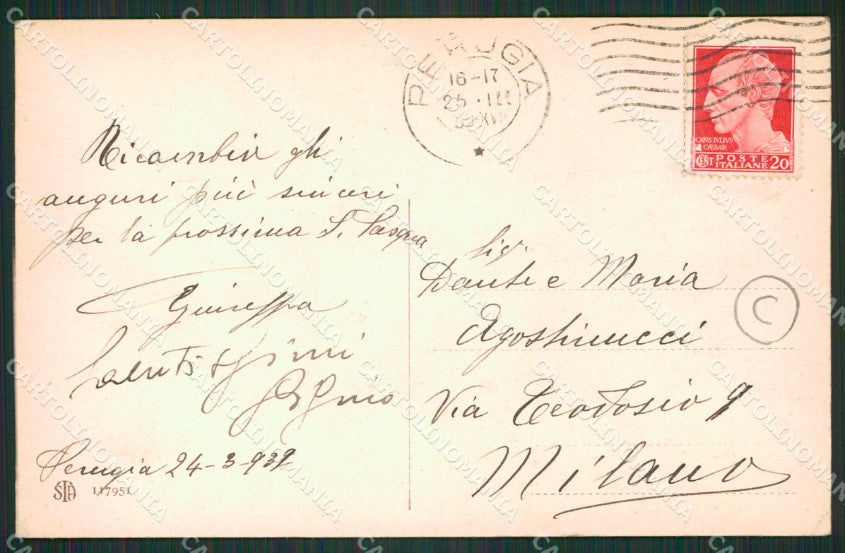 PERUGIA
16-17
25 · III
XVII
CAIVS IVLIVS
CAESAR
CENT POSTE ITALIANE 20
Ricambio gli
auguri più sinceri
per la prossima S. Pasqua
Giuseppa
Saluti
Perugia 24-3-939
STA 117951
Sigi.
Dante e Maria
Agostinucci
Via Teodosio 9
Milano
C
CARTOLINOMANIA